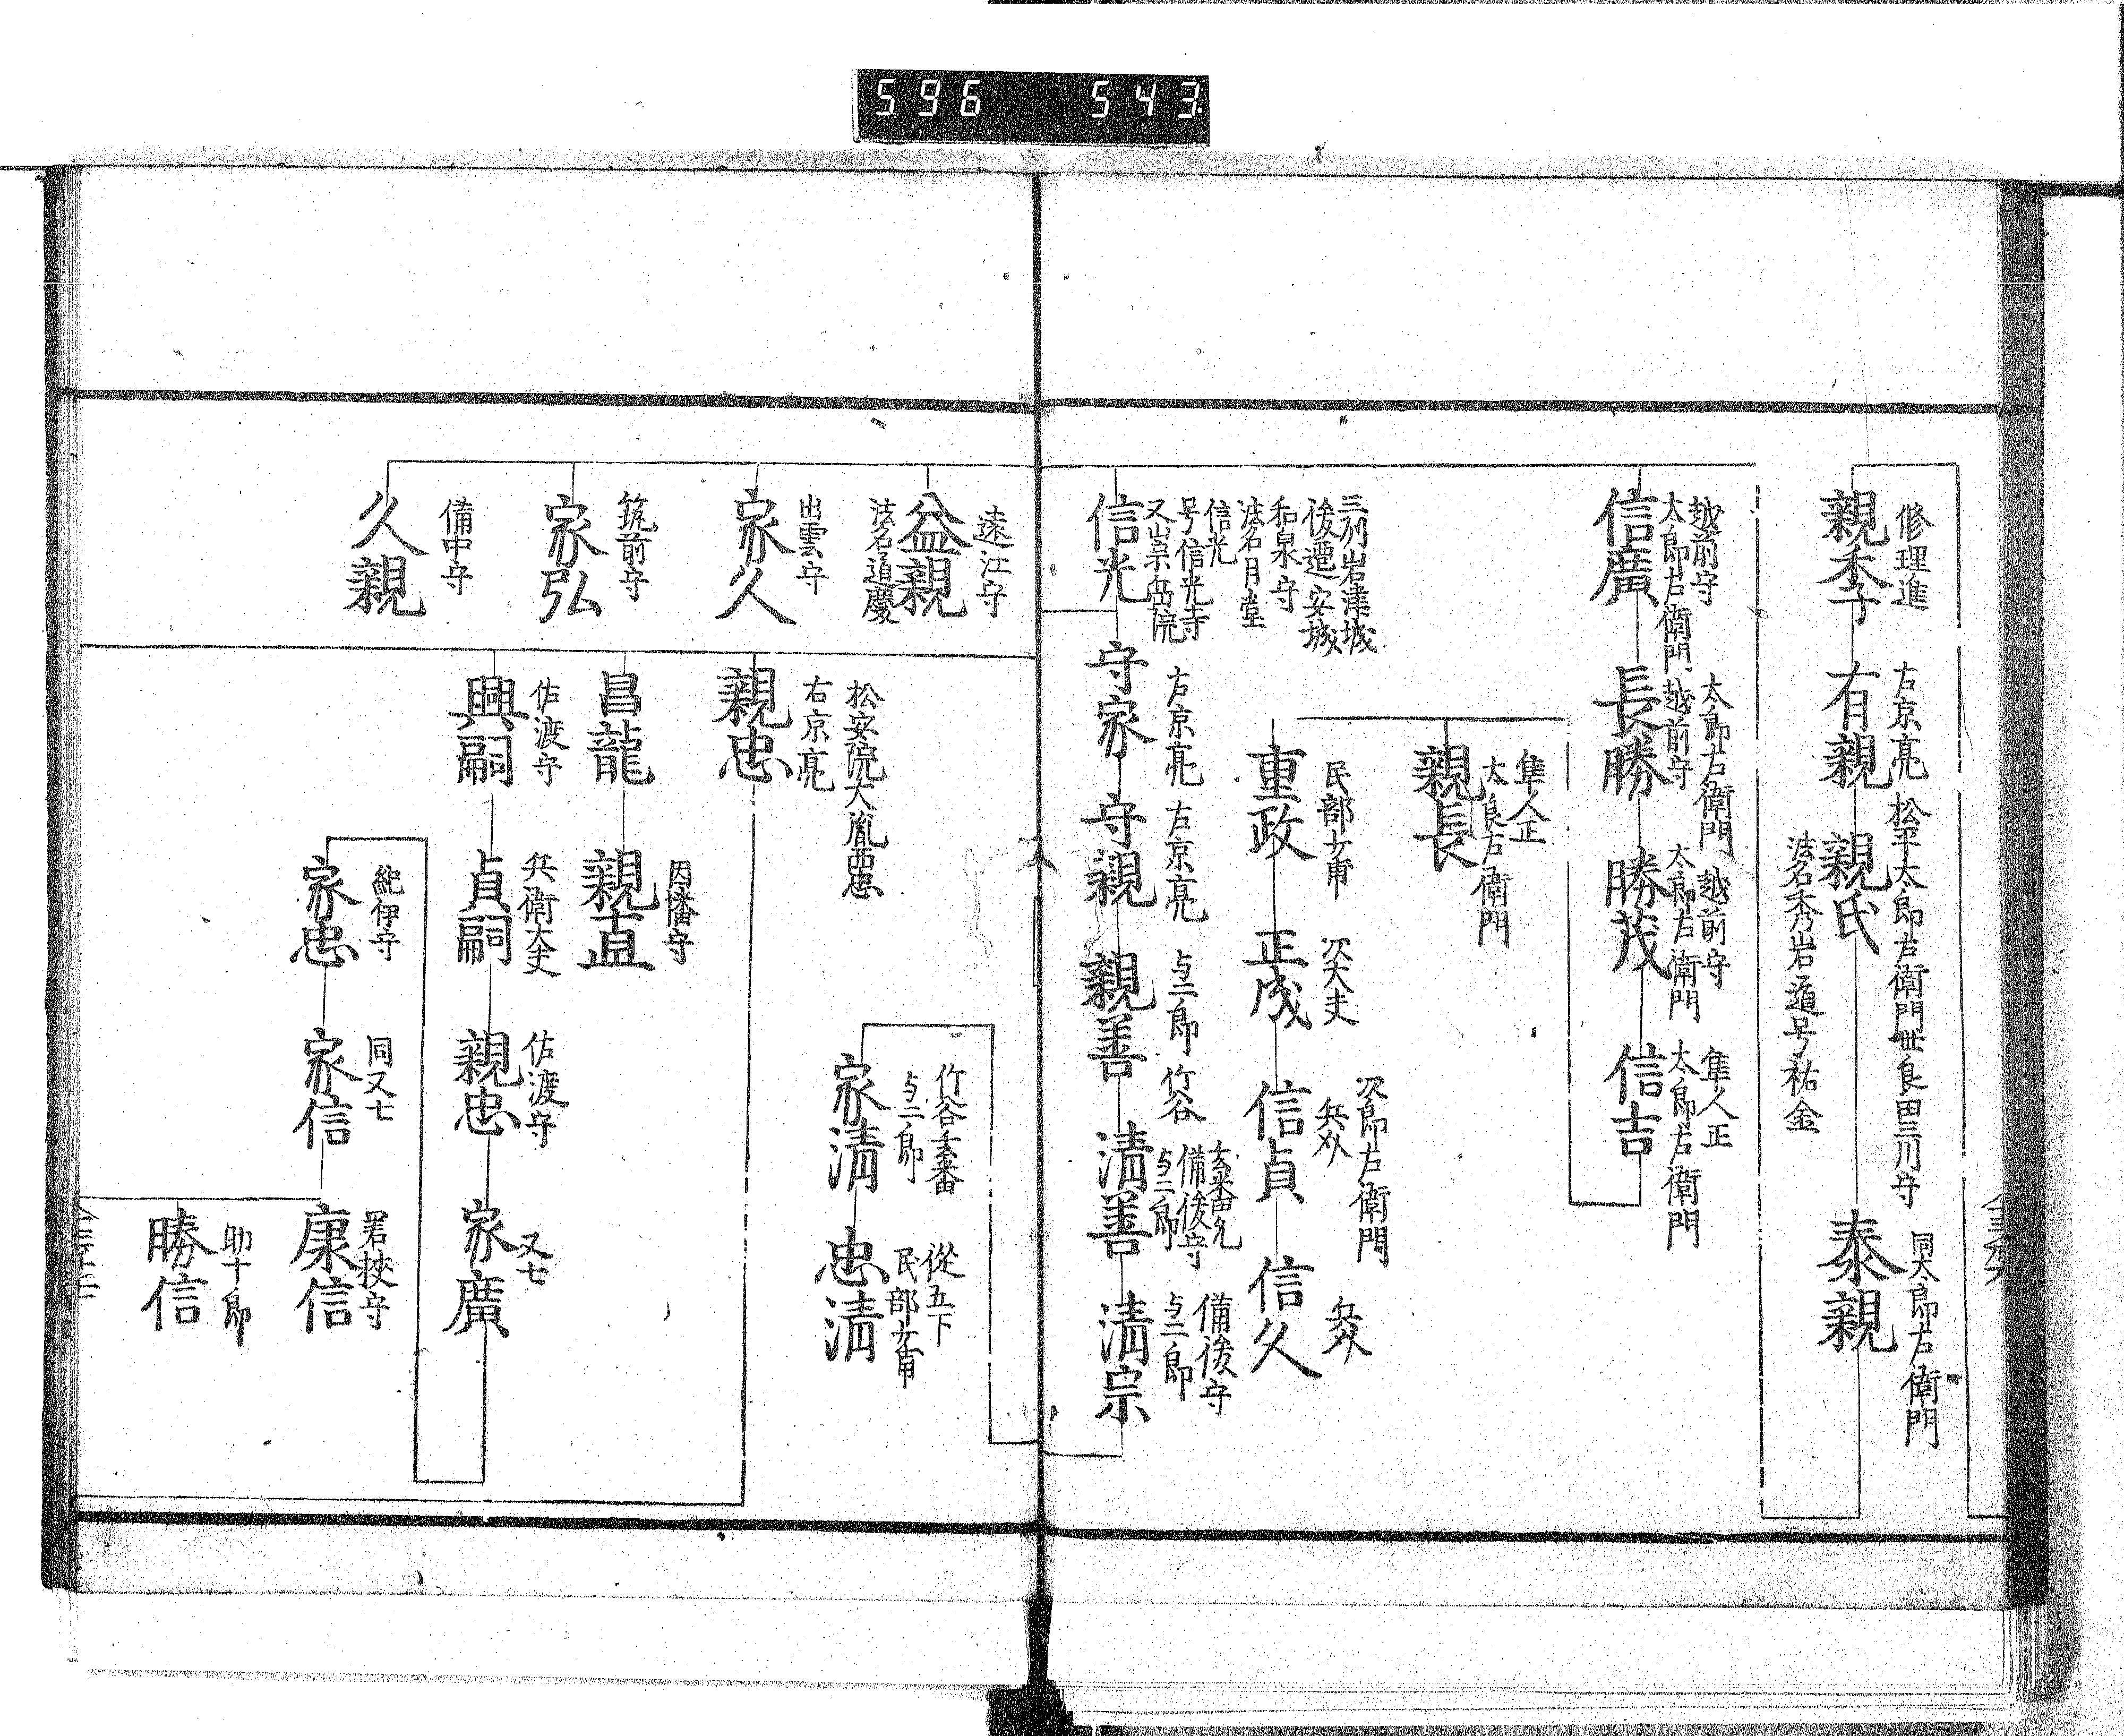 596 543
修理進
親季
右京亮
有親
松平太郎左衛門世良田三川守
親氏
法名秀岩道号祐金
同太郎左衛門
泰親
越前守
太郎左衛門
信廣
太郎左衛門
越前守
長勝
越前守
太郎左衛門
勝茂
隼人正
太郎左衛門
信吉
隼人正
太良左衛門
親長
民部少甫
重政
次大夫
正成
次郎右衛門
信貞
信久
三列岩津城
後遷安城
和泉守
法名月堂
信光
号信光寺
又崇岳院
信光
右京亮
守家
右京亮
守親
与二郎
竹谷
親善
備後守
与二郎
清善
備後守
与二郎
清宗
遠江守
益親
法名道慶
出雲守
家久
筑前守
家弘
備中守
久親
竹谷玄番
与二郎
家清
從五下
民部少甫
忠清
松安院大胤西忠
右京亮
親忠
昌龍
因播守
親直
佐渡守
興嗣
兵衛大夫
貞嗣
佐渡守
親忠
又七
家廣
紀伊守
家忠
同又七
家信
若挾守
康信
助十郎
勝信